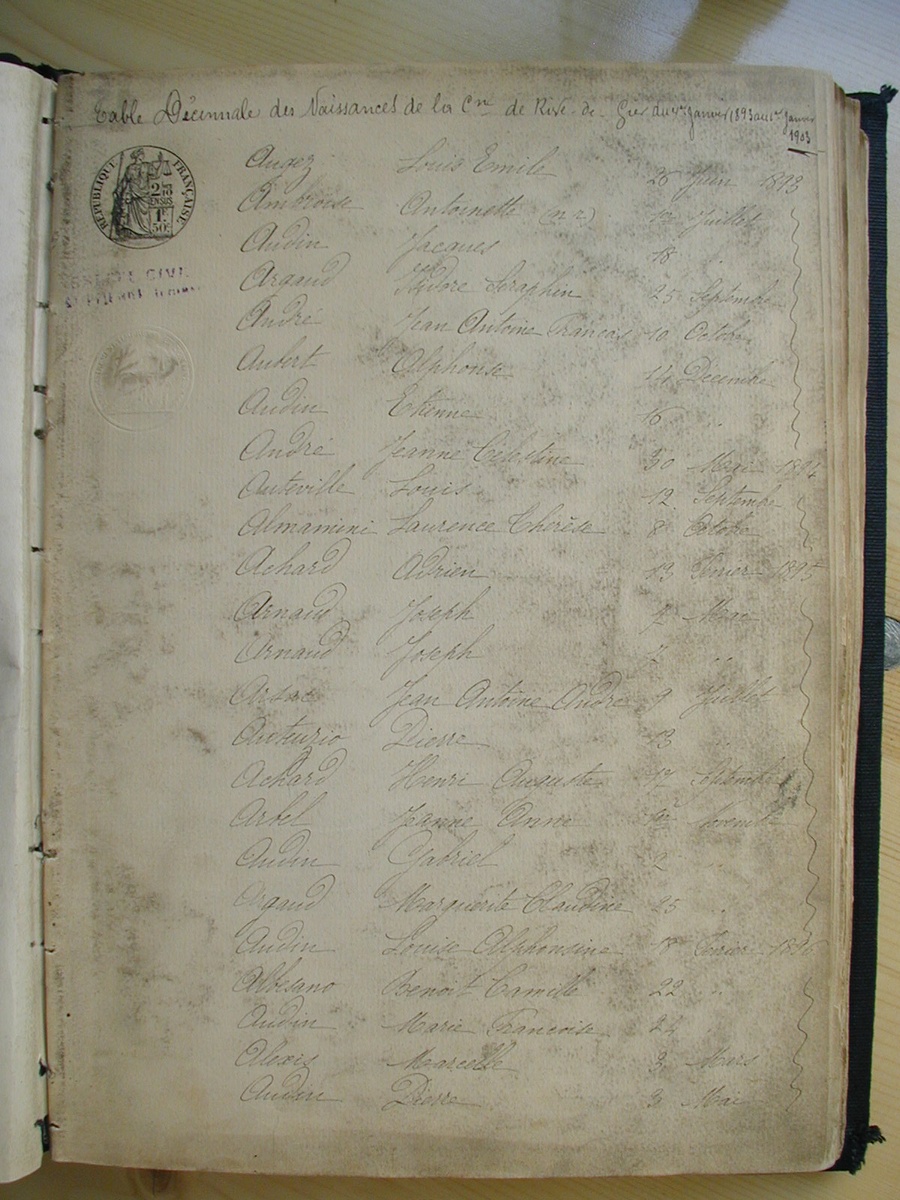 Table Décennale des Naissances de la Cne de Rive-de-Gier du 1er Janvier 1893 au 1er Janvier 1903
RÉPUBLIQUE FRANÇAISE
2/10 EN SUS
1F 50c
Augez Louis Emile 26 Juin 1893
Ambroise Antoinette 12 Juillet
Audin Jacques 18 "
Argaud Isidore Séraphin 25 Septembre
André Jean Antoine Francois 10 Octobre
Aubert Alphonse 14 Décembre
Audin Etienne 16 "
André Jeanne Célestine 30 Mai 1894
Auteville Louis 12 Septembre
Almamini Laurence Thérèse 8 Octobre
Achard Adrien 13 Février 1895
Arnaud Joseph 2 Mai
Arnaud Joseph 2 "
Jean Antoine André 9 Juillet
Pierre 13 "
Achard Henri Auguste 17 Septembre
Arbel Jeanne Anna Novembre
Audin Gabriel 2 "
Argaud Marguerite Claudine 25 "
Audin Louise Alphonsine 18 Février 1896
Albesano Benoit Camille 22 "
Audin Marie Francoise 24 "
Alexis Marcelle 3 Mars
Audin Pierre 3 Mai